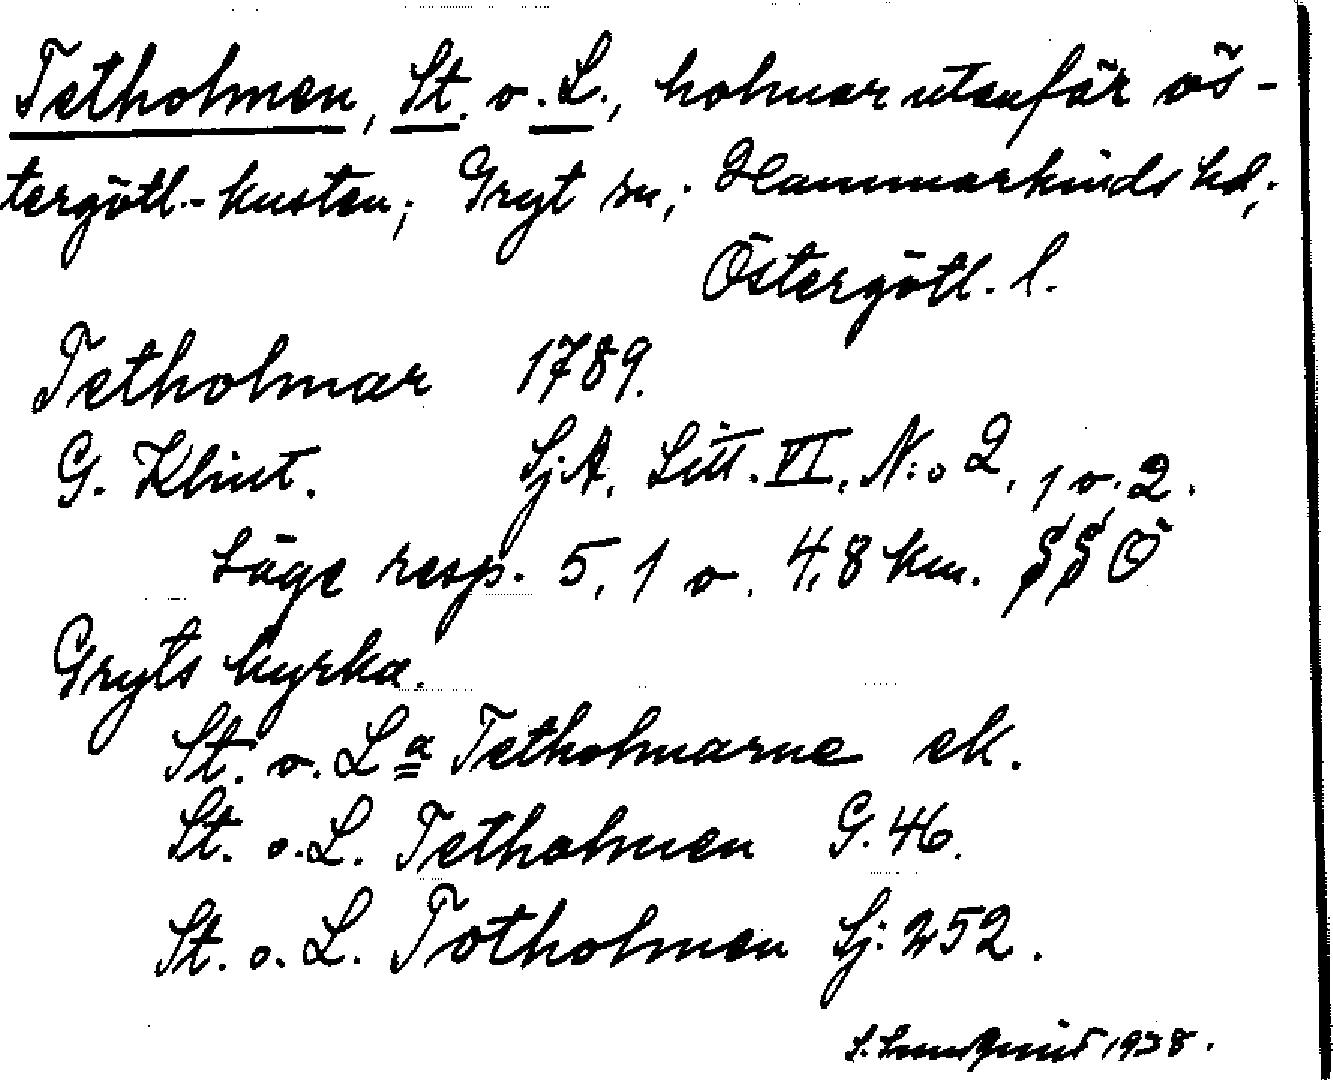 Tetholmen, St. o. L., holmar utanför ös-
tergötl.-kusten; Gryt sn; Hammarkinds hd,
Östergötl. l.
Tetholmar 1789.
G. Klint. Sj.A. Litt. VI, N:o 2, 1 o. 2.
Läge resp. 5,1 o. 4,8 km. SSO
Gryts kyrka.
St. o. La Tetholmarne ek.
St. o. L. Tetholmen G. 46.
St. o. L. Totholmen Sj: 252.
1938.